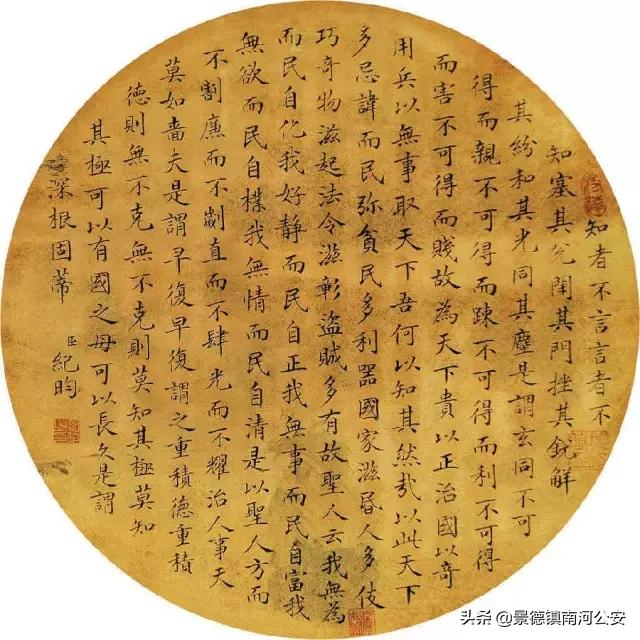 知者不言言者不
知塞其兌閉其門挫其銳解
其紛和其光同其塵是謂玄同不可
得而親不可得而踈不可得而利不可得
而害不可得而賤故為天下貴以正治國以奇
用兵以無事取天下吾何以知其然哉以此天下
多忌諱而民弥貧民多利器國家滋昏人多伎
巧奇物滋起法令滋彰盜賊多有故聖人云我無為
而民自化我好靜而民自正我無事而民自富我
無欲而民自樸我無情而民自清是以聖人方而
不割廉而不劌直而不肆光而不耀治人事天
莫如嗇夫是謂早復早復謂之重積德重積
德則無不克無不克則莫知其極莫知
其極可以有國之母可以長久是謂
深根固蒂
臣紀昀
头条 @景德镇南河公安